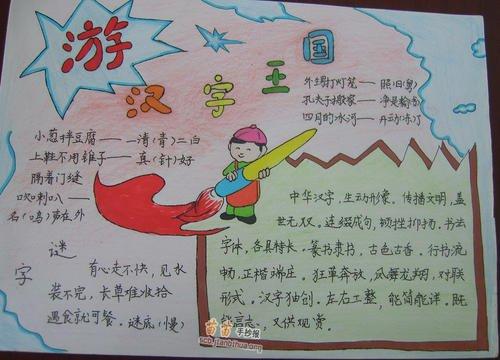 游
汉字王国
外甥打灯笼——照旧(舅)
孔夫子搬家——净是输(书)
四月的冰河——开动(冻)了
小葱拌豆腐——一清(青)二白
上鞋不用锥子——真(针)好
隔着门缝
吹喇叭——
名(鸣)声在外
字谜
有心走不快,见水
装不完,长草难收拾
遇食就可餐。谜底:(慢)
中华汉字,生动形象。传播文明,盖
世无双。连缀成句,顿挫抑扬。书法
字体,各具特长。篆书隶书,古色古香。行书流
畅,正楷端庄。狂草奔放,凤舞龙翔,对联
形式。汉字独创。左右工整,能简能详。既
能言志,又供观赏。
苗苗手抄报
sc0.jianbihua.org